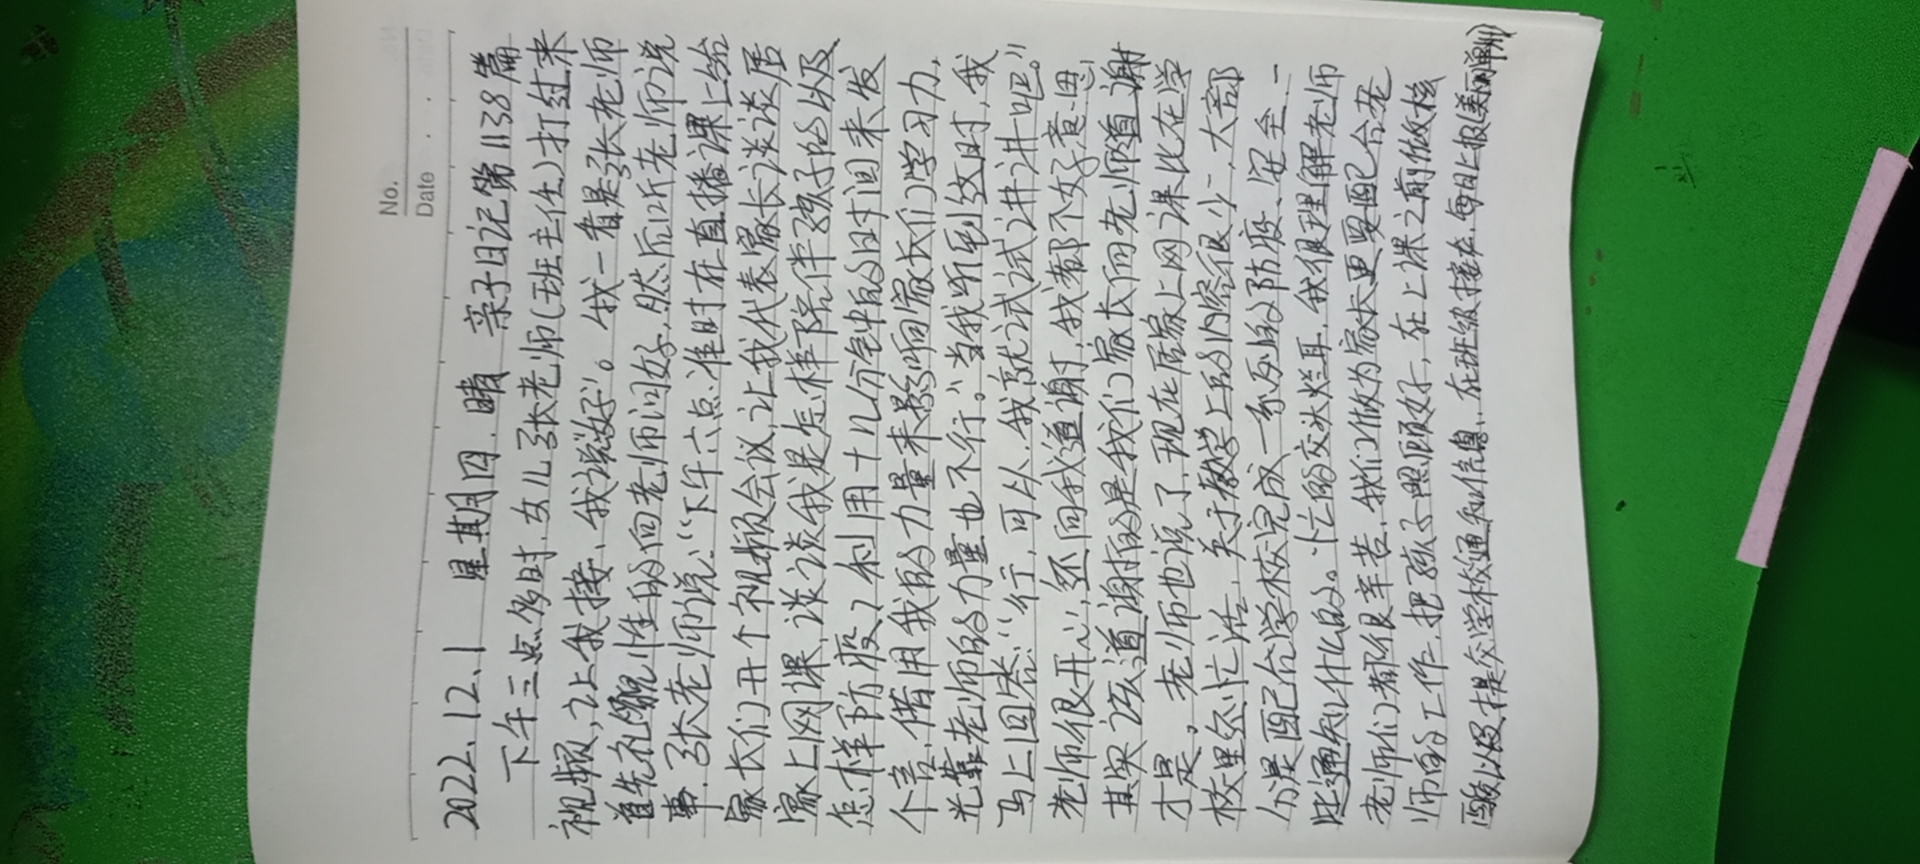 No.
Date
2022.12.1 星期四.晴 亲子日记第1138篇
下午三点多时,女儿张老师(班主任)打过来
视频,让我接、我说好"。我一看是张老师
首先礼貌性的向老师问好,然后听老师说
事.张老师说:"下午六点.准时在直播课上给
家长们开个视频会议,让我代表家长谈谈居
家上网课,谈谈我是怎样陪伴孩子的以及
怎样防疫,利用十几分钟的时间来发
个言,借用我的力量来影响家长们学习力,
光靠老师的力量也不行。"当我听到这时,我
马上回答:"行,可以.我就试试讲讲吧。"
老师很开心,还向我道谢,我都不好意思,
其实该道谢的是我们家长向老师道谢
才是。老师也说了,现在居家上网课比在学
校里还忙活、关于教学上的内容很少,大部
分是配合学校完成一系列的防疫、安全一
些通知什么的。忙的交头烂耳,我很理解老师
老师们都很辛苦.我们做为家长更要配合老
师的工作.把孩子照顾好,在上课之前做核
酸以及提交学校通知信息、在班级接龙.每日上报(美丽)